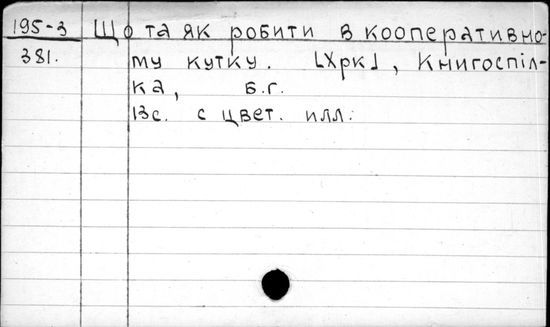 195-3 Що та як робити в кооперативно-
381. му кутку. [Хрк], Книгоспіл-
ка, б.г.
13с. с цвет. илл.